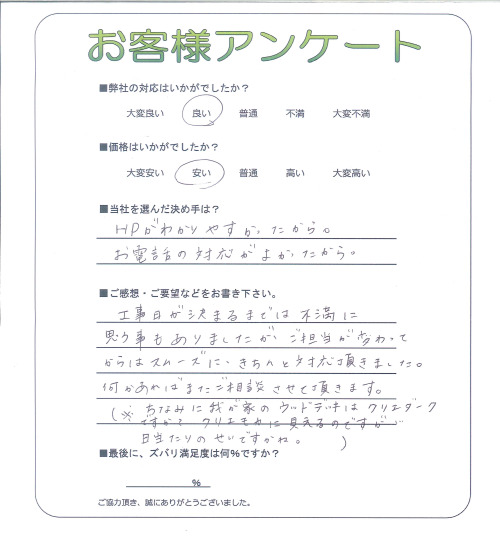 お客様アンケート
■弊社の対応はいかがでしたか？
大変良い 良い 普通 不満 大変不満
■価格はいかがでしたか？
大変安い 安い 普通 高い 大変高い
■当社を選んだ決め手は？
HPがわかりやすかったから。
お電話の対応がよかったから。
■ご感想・ご要望などをお書き下さい。
工事日が決まるまでは不満に
思う事もありましたが、ご担当が変わって
からはスムーズに、きちんと対応頂きました。
何かあればまたご相談させて頂きます。
(※ ちなみに我が家のウッドデッキはクリエダーク
ですか？クリエモカに見えるのですが
日当たりのせいですかね。)
■最後に、ズバリ満足度は何%ですか？
%
ご協力頂き、誠にありがとうございました。